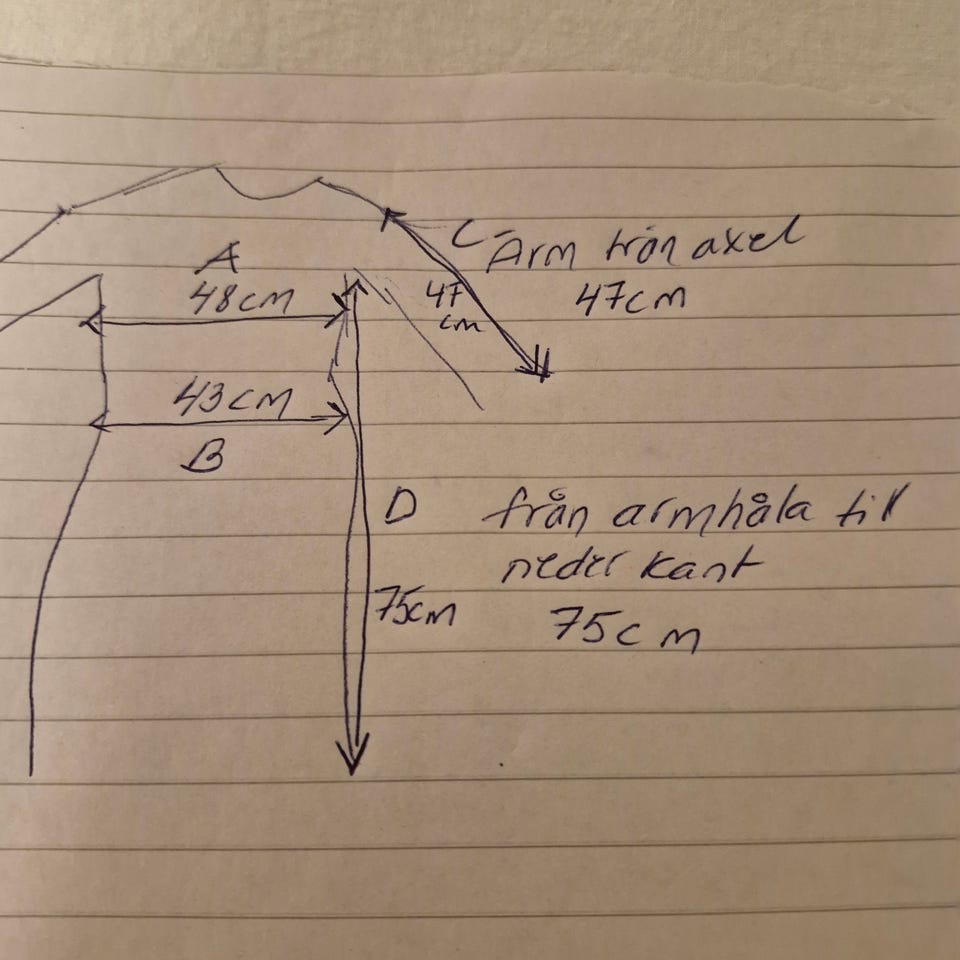 A
48cm
C-
Arm från axel
47
cm
47cm
43cm
B
D
från armhåla till
neder kant
75cm
75cm